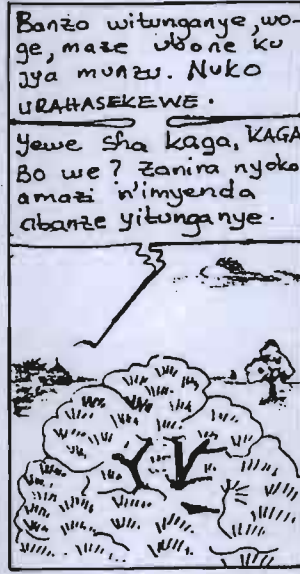 Banzo witunganye, wo-
ge, maze ubone ku
jya munzu. Nuko
URAHASEKEWE.
Yewe sha kaga, KAGA
Bo we? Zanira nyoko
amazi n'imyenda
abanze yitunganye.